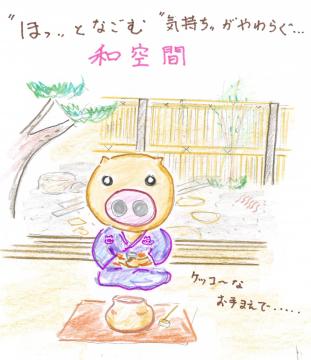 "ほっ‥となごむ "気持ち"がやわらぐ…
和空間
ケッコ〜な
お手まえで.....